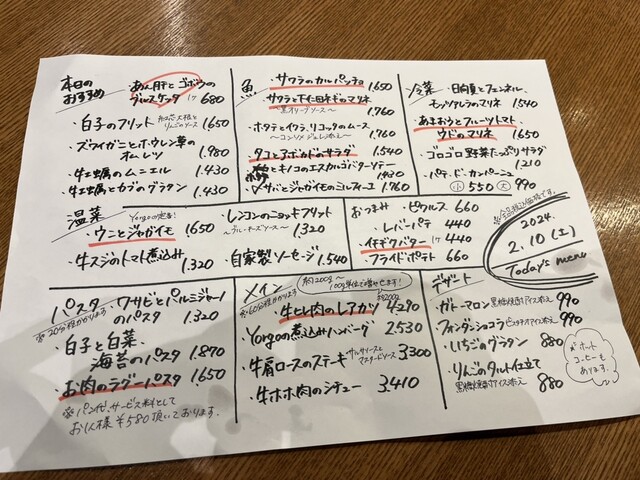 本日の
おすすめ
あん肝とゴボウの
ブルスケッタ 1ヶ 680
・白子のフリット 紅芯大根と
りんごのソース 1.650
・ズワイガニとホウレン草の
オムレツ 1.980
・牡蠣のムニエル 1.430
・牡蠣とカブのグラタン 1.430
魚
・サワラのカルパッチョ 1.650
・サワラと下仁田ネギのマリネ
〜黒オリーブソース〜 1.760
・ホタテとイクラ、リコッタのムース
〜コンソメジュレ添え〜 1.760
・タコとアボカドのサラダ 1.540
とキノコのエスカルゴバターソテー
・〆サバとジャガイモのミルフィーユ 1.760
冷菜
・日向夏とフェンネル、
モッツァレラのマリネ 1.540
・あまおうとフルーツトマト、
ウドのマリネ 1.650
・ゴロゴロ野菜たっぷりサラダ
1.210
・パテ・ド・カンパーニュ
小 550 大 990
温菜
Yorgo定番!
・ウニとジャガイモ 1650
・牛スジのトマト煮込み 1.320
・レンコンのニョッキフリット
〜ブルーチーズソース〜 1.320
・自家製ソーセージ 1.540
おつまみ
・ピクルス 660
・レバーパテ 440
・イチヂクバター 1ヶ 440
・フライドポテト 660
※全品税込価格です。
2024.
2.10(土)
Today's menu
パスタ
※20分程かかります
・ワサビとパルミジャーノ
のパスタ 1.320
・白子と白菜、
海苔のパスタ 1.870
・お肉のラグーパスタ 1.650
※パン代、サービス料として
お1人様 ¥580 頂いております。
メイン
※60分程かかります
約200g〜
100g単位で増やせます!
・牛ヒレ肉のレアカツ 4.290
・Yorgoの煮込みハンバーグ 2.530
・牛肩ロースのステーキ サルサソースと
マスタードソース 3.300
・牛ホホ肉のシチュー 3.410
デザート
・ガトーマロン 黒糖焼酎アイス添え 990
・フォンダンショコラ ピスタチオアイス添え 990
・いちごのグラタン 880
・りんごのタルト仕立て
黒糖焼酎アイス添え 880
※ホット
コーヒーも
あります。